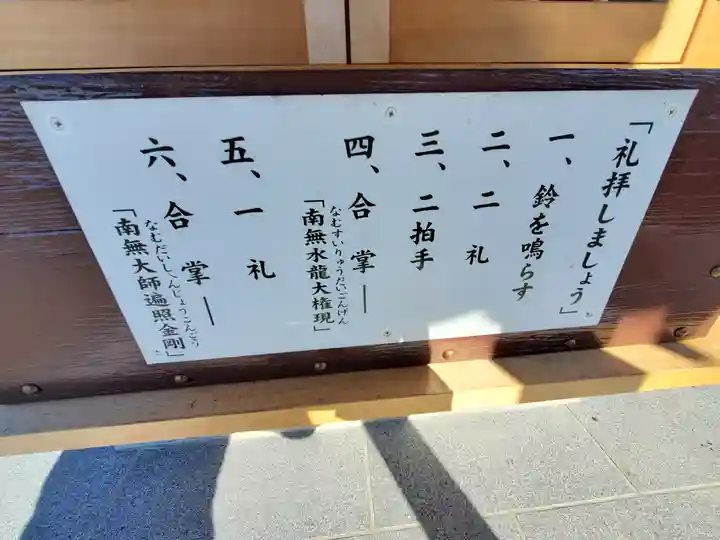 「礼拝しましょう」
一、鈴を鳴らす
二、二礼
三、二拍手
四、合掌―
なむすいりゅうだいごんげん
「南無水龍大権現」
五、一礼
六、合掌―
なむだいしへんじょうこんごう
「南無大師遍照金剛」